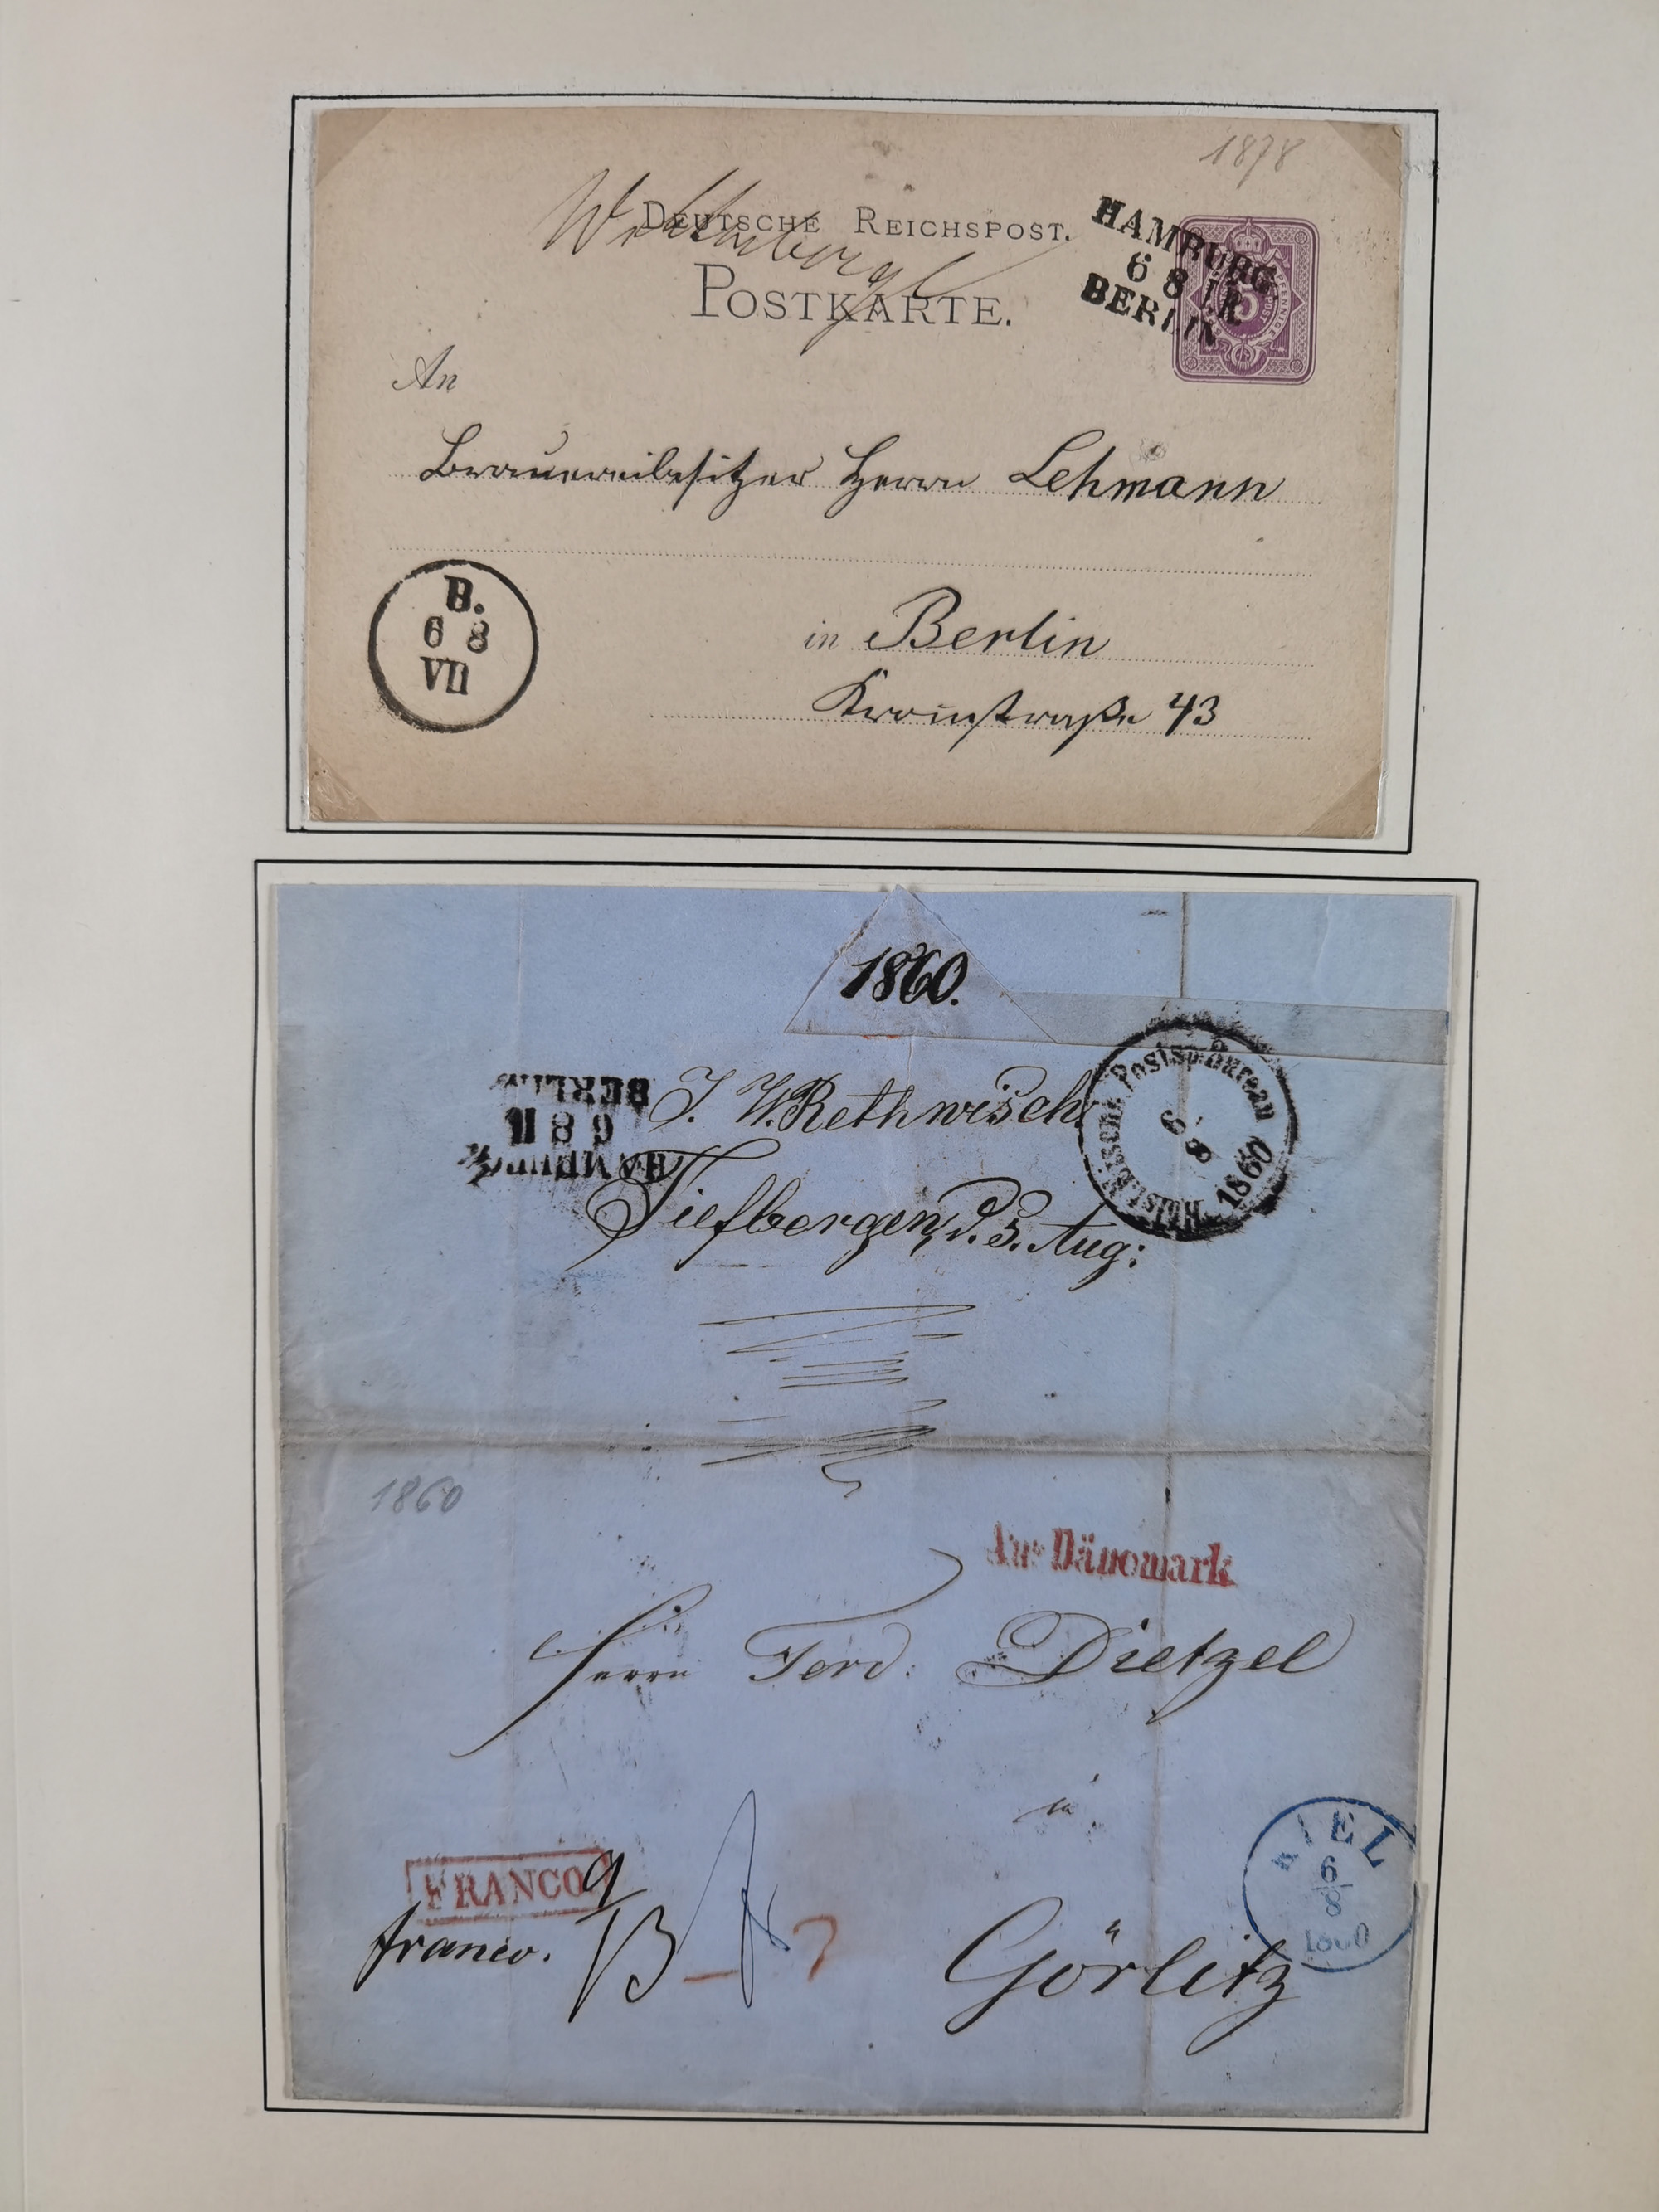 1878
DEUTSCHE REICHSPOST.
POSTKARTE.
HAMBURG
6 8
BERLIN
5
An
Brauereibesitzer Herrn Lehmann
in Berlin
B.
6 8
VII
43
1860.
J. W. Rethwisch
d. 3. Aug:
BERLIN
6 8 II
HAMBURG
Holsteinsches Postsp: Bureau
6 8
1860
1860
Aus Dänemark
Herrn Ferd: Dietzel
in
Görlitz
FRANCO
franco.
KIEL
6
8
1860